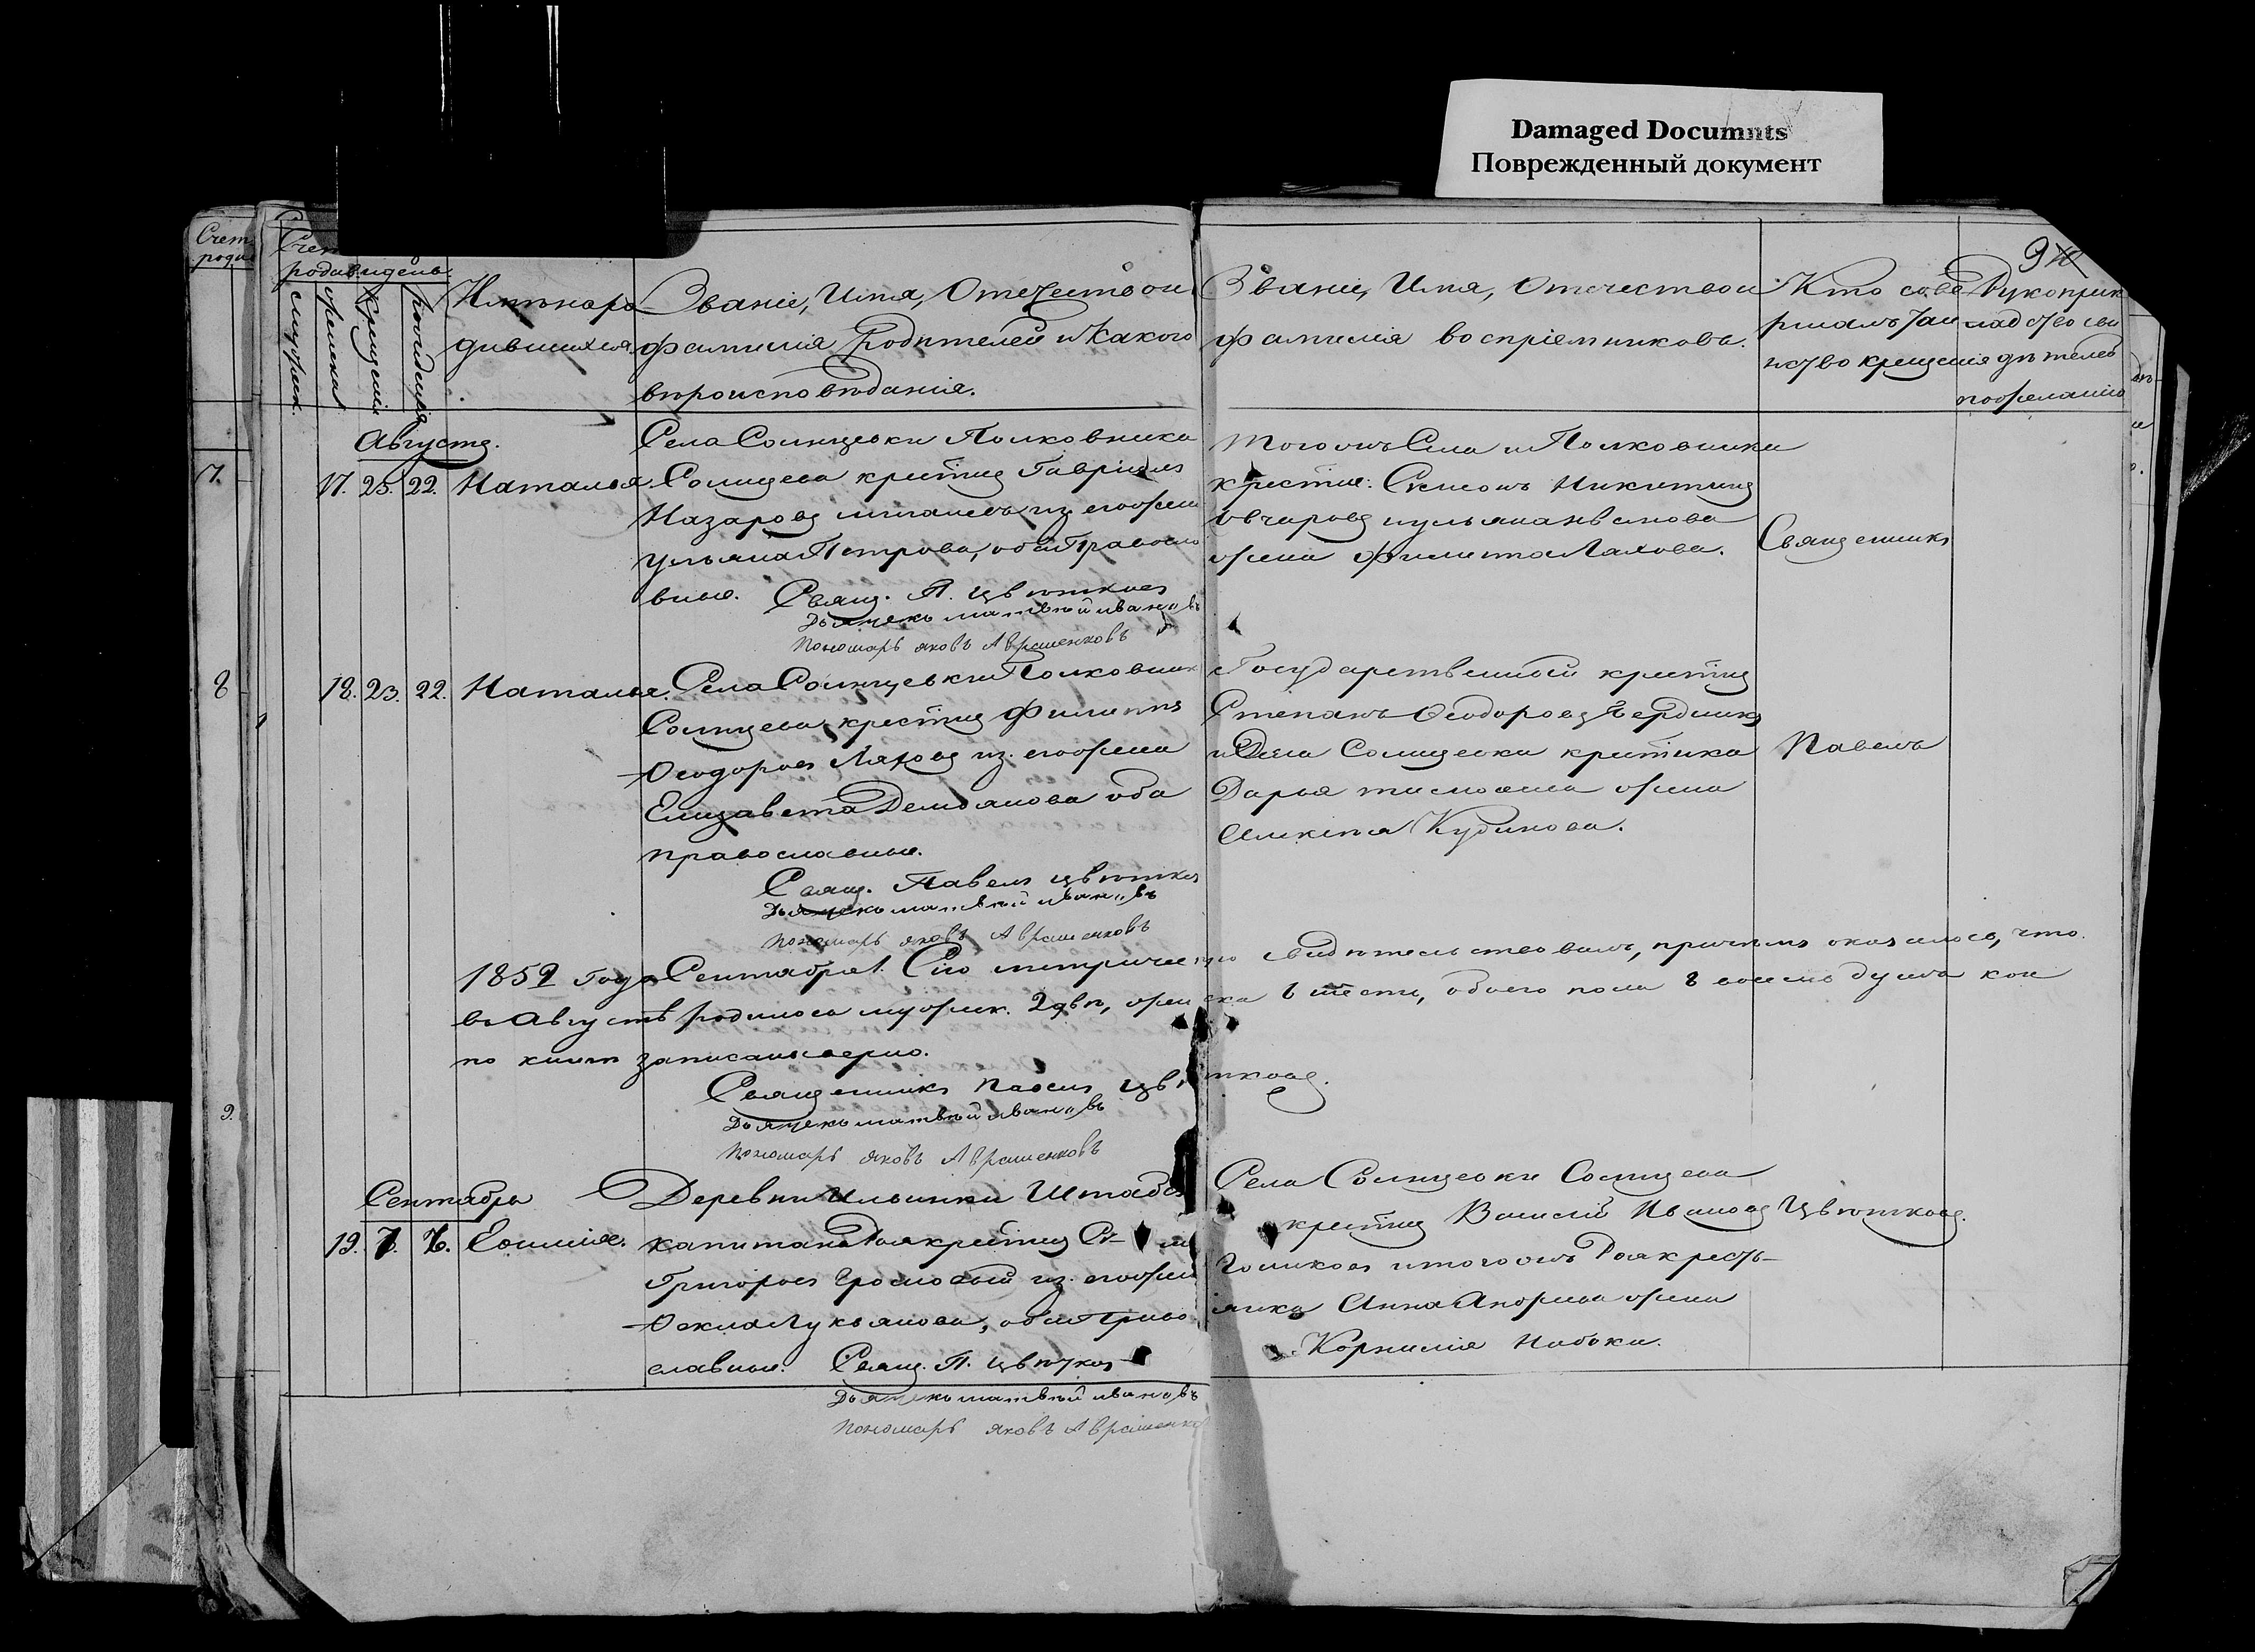 Damaged Documnts
Поврежденный документ
9
Счет
родив. и день
мужеск.
женска
Крещенія
рожденія
Имѣна ро
дившихся.
Званіе, Имя, Отечество и
фамилія Родителей и Какого
вѣроисповѣданія.
Званіе, Имя, Отечество и
фамилія воспріемниковъ.
Кто сове
ршалъ Таи
нство крещенія
Рукоприк
ладство сви
дѣтелей
по желанію
Августъ.
17. 23. 22. Наталья
Села Солнцевки Полковника
Солнцева крестьян Гавріилъ
Назаровъ из. его жена
Ульяна Петрова, оба Православ
вные.
Свящ. П. Цвѣтковъ
Дьячекъ матвѣй ивановъ
Пономарь яковъ Авраменковъ
Того жъ Села и Полковника
крестьян: Никитинъ
Овчаровъ и ульяна иванова
жена Филипа Ляхова.
Священникъ
18. 23. 22. Наталья.
Села Солнцевки Полковник
Солнцева крестьян Филиппъ
Ѳеодоровъ Ляховъ из. его жена
Елизавета Демьянова оба
православные.
Свящ. Павелъ Цвѣтков
Дьячекъ матвѣй ивановъ
Пономарь яковъ Авраменковъ
Государственной крестьян
Степанъ Ѳеодоровъ Бердникъ
и Села Солнцевки крестьянка
Дарья жена
Алексѣя Кудинова.
Павелъ
1852 года Сентября 1. Сію метрическую свидѣтельствовалъ, причемъ оказалось, что
въ Августѣ родилось мужеск. 2 двѣ, женска 6 шесть, обоего пола 8 восемь душъ кои
по книгѣ записаны вѣрно.
Священникъ Павелъ Цвѣтковъ.
Дьячекъ матвѣй ивановъ
Пономарь яковъ Авраменковъ
Сентябрь
19. 7. 7. Евгенія.
Деревни Ильинки Штабсъ
капитана крестьян
Григорьевъ из. его жена
Ѳекла Лукьянова, оба Право
славные.
Свящ. П. Цвѣтков
Дьячекъ матвѣй ивановъ
Пономарь яковъ Авраменко
Села Солнцевки Солнцева
крестьян Василій Ивановъ
Голиковъ и того жъ кресть
янка Анна жена
Корнилія Набока.
Цвѣтковъ.
7.
8
9.